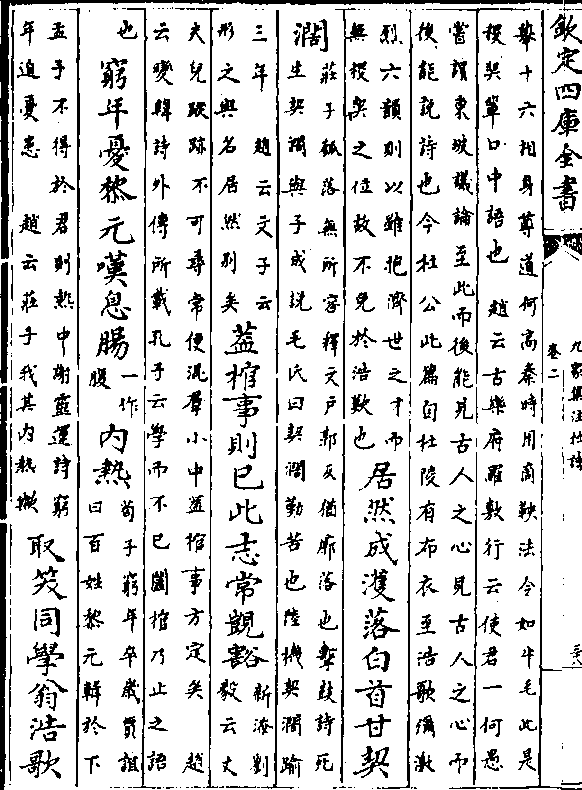 欽定四庫全書
九家集注杜詩
卷二
舉十六相身尊道何高秦時用商鞅法令如牛毛此是
稷契輩口中語也 趙云古樂府羅敷行云使君一何愚
嘗謂東坡議論至此而後能見古人之心見古人之心而
後能說詩也今杜公此篇自杜陵有布衣至浩歌彌激
烈六韻則以雖抱濟世之才而
無稷契之位故不免於浩歎也
居然成濩落白首甘契
濶
莊子瓠落無所容釋文戶郭反猶廓落也擊鼓詩死
生契濶與子成說毛氏曰契濶勤苦也陸機契濶踰
三年 趙云文子云
形之與名居然别矣
蓋棺事則已此志常覬豁
新添劉
毅云丈
夫兒蹤跡不可尋常便混羣小中蓋棺事方定矣 趙
云變韓詩外傳所載孔子云學而不已闔棺乃止之語
也
窮年憂黎元嘆息腸
一作
腹
内熱
荀子窮年卒歲賈誼
曰百姓黎元輯於下
孟子不得於君則熱中謝靈運詩窮
年迫憂患 趙云莊子我其内熱歟
取笑同學翁浩歌